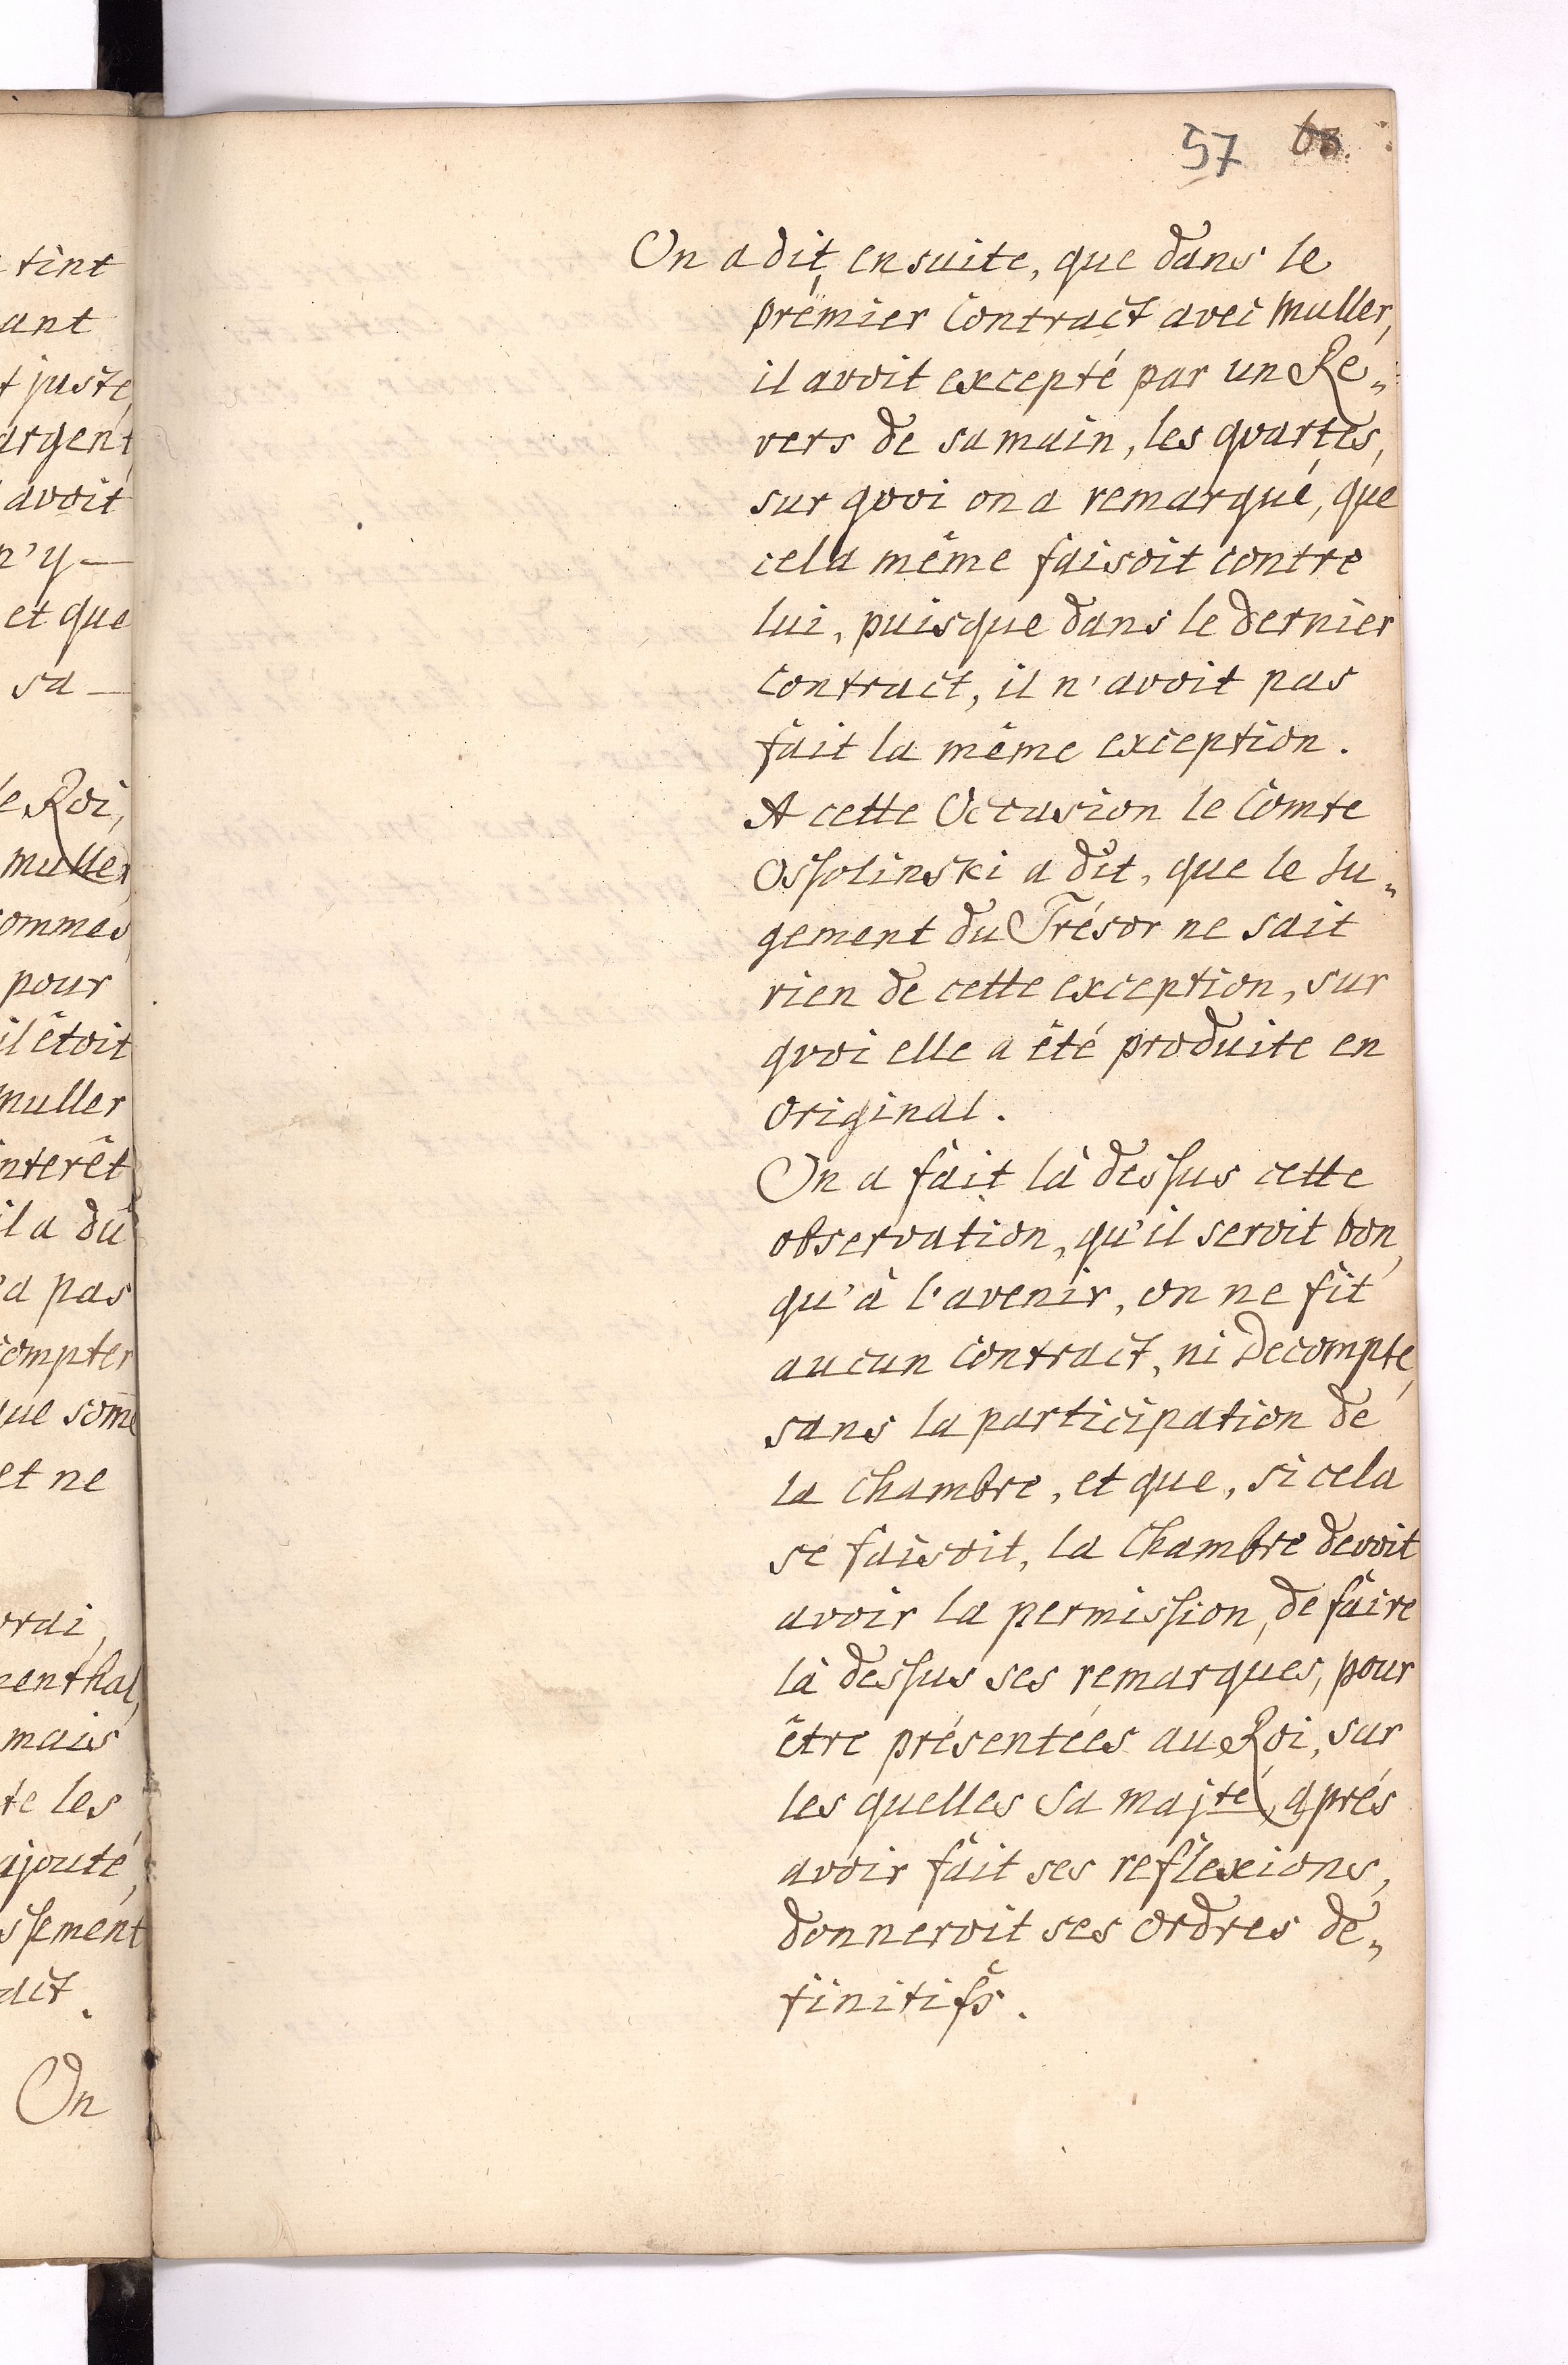 tint
ant
t juste,
argent
avoit
n'y—
et que
sa—
le Roi,
muller,
commes
pour
il êtoit
muller
interêt
il a dû
a pas
compter
que some
et ne
vrai,
nenthal,
mais
te les
ajouté,
ssement
act.
On
57 63.
On a dit, ensuite, que dans le
prémier Contract avec Muller,
il avoit excepté par un Re„
vers de sa main, les quartes,
sur quoi on a remarqué, que
cela même faisoit contre
lui, puisque dans le dernier
Contract, il n'avoit pas
fait la même exception.
A cette Occasion le Comte
Ossolinski a dit, que le Ju„
gement du Trésor ne sait
rien de cette exception, sur
quoi elle a êté produite en
Original.
On a fait là dessus cette
observation, qu'il seroit bon,
qu'à l'avenir, on ne fit
aucun Contract, ni Decompte,
sans la participation de
la Chambre, et que, si cela
se faisoit, la Chambre devoit
avoir la permission, de faire
là dessus ses remarques, pour
être présentées au Roi, sur
les quelles Sa majté, aprés
avoir fait ses reflexions,
donneroit ses Ordres de„
finitifs.